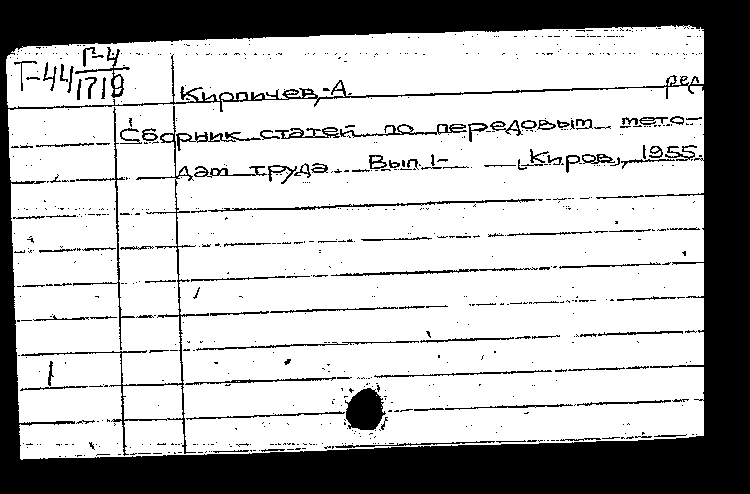 Г-4
Т-44 1719
Кирпичев, А. ред.
Сборник статей по передовым мето-
дам труда. Вып. 1- [Киров], 1955.
1